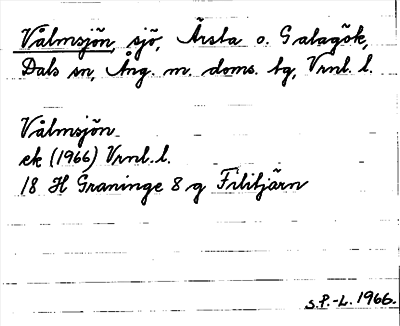 Vålmsjön, sjö, Ärsta o. Galagök,
Dals sn, Ång. m. doms. bg, Vrnl. l.
Vålmsjön
ek (1966) Vrnl. l.
18 H Graninge 8 g Filitjärn
S.P.-L. 1966.